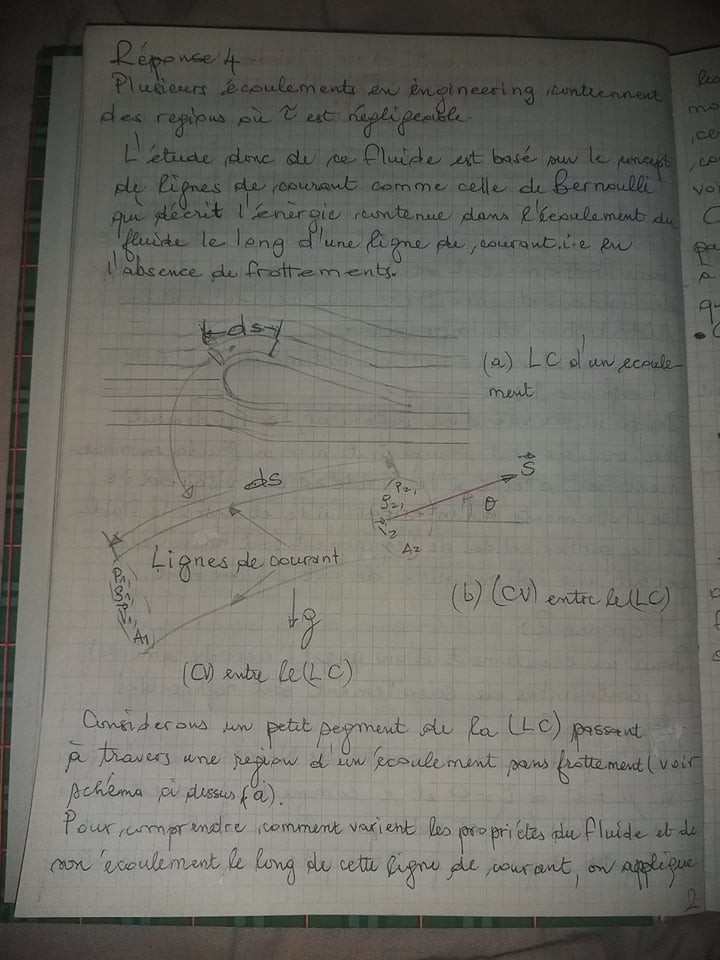 Réponse 4
Plusieurs écoulements en engineering contiennent
des regions où τ est négligeable.
L'étude donc de ce fluide est basé sur le concept
de lignes de courant comme celle de Bernoulli
qui décrit l'énergie contenue dans l'écoulement du
fluide le long d'une ligne de courant.i.e en
l'absence de frottements.
ds
(a) LC d'un ecoule-
ment
S
ds
P2,
ρ2,
V2
θ
A2
Lignes de courant
P1,
ρ1,
V1,
A1
g
(b) (CV) entre le (LC)
(CV) entre le (LC)
Considerons un petit segment de la (LC) passant
à travers une region d'un écoulement sans frottement (voir
schéma ci dessus (a).
Pour comprendre comment varient les propriétes du fluide et de
son écoulement le long de cette ligne de courant, on applique
2